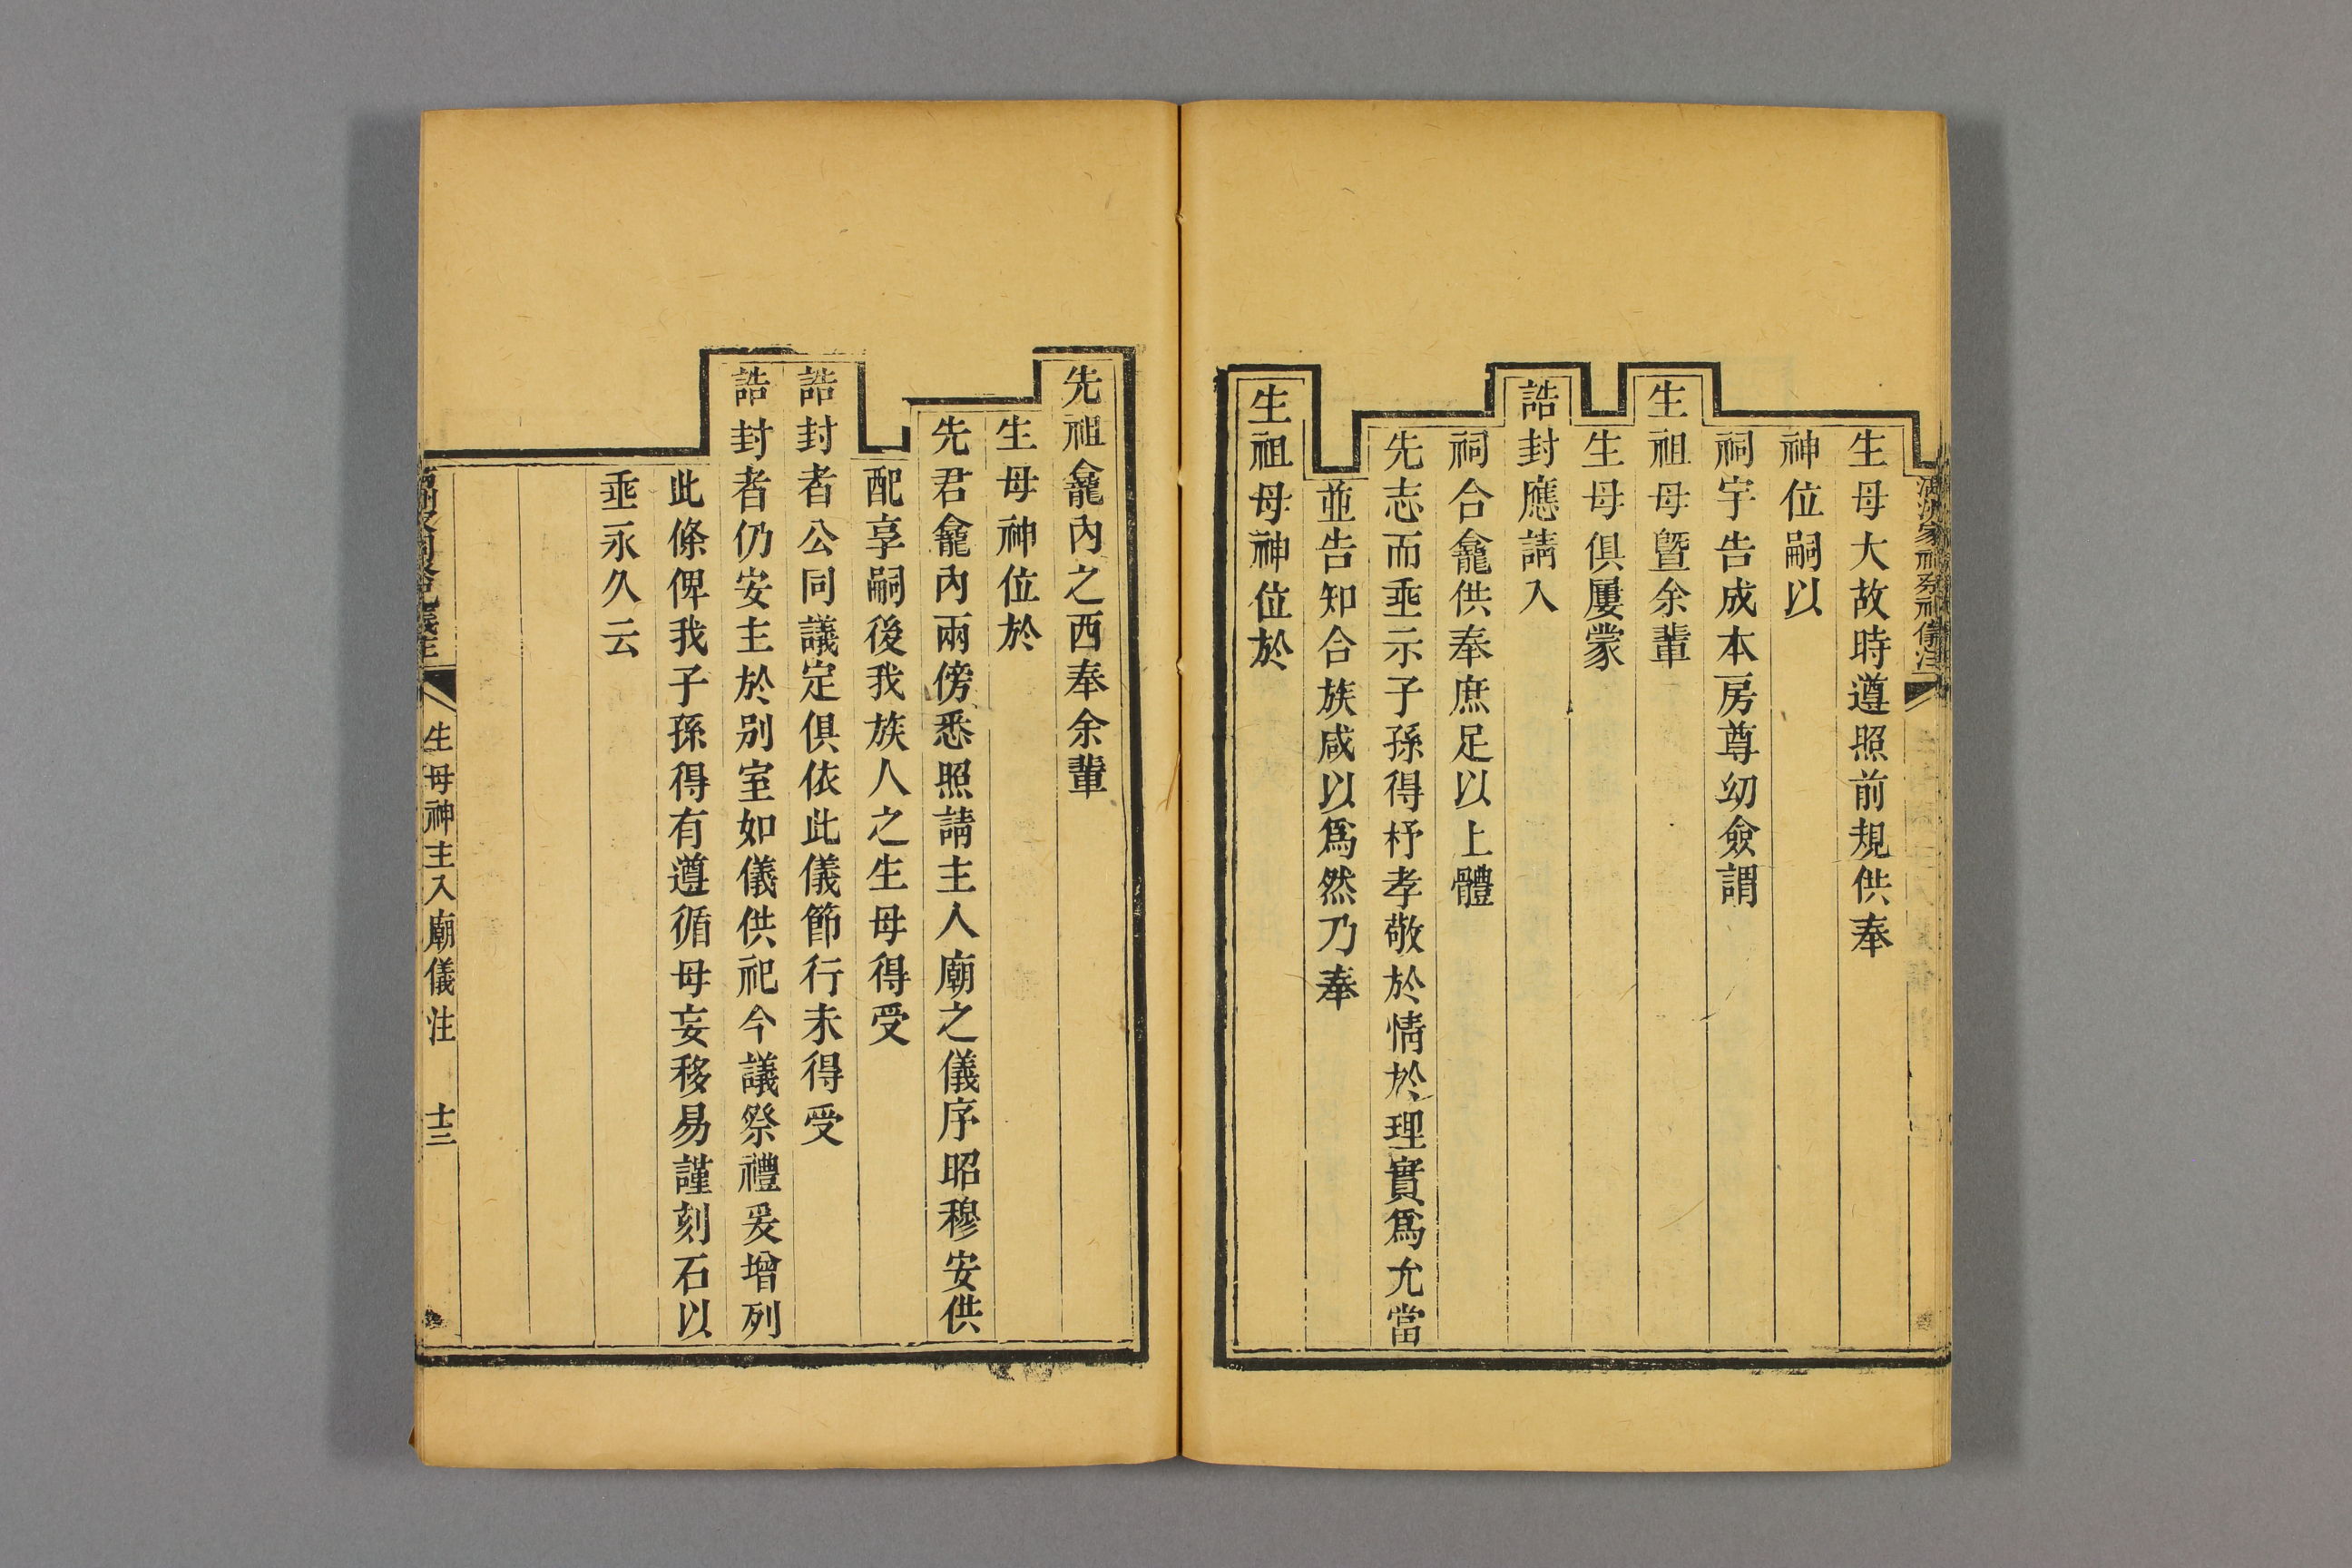 生母大故時遵照前規供奉
神位嗣以
祠宇告成本房尊幼僉謂
生祖母曁余輩
生母俱屢蒙
誥封應請入
祠合龕供奉庶足以上體
先志而垂示子孫得杼孝敬於情於理實爲允當
並告知合族咸以爲然乃奉
生祖母神位於
先祖龕內之西奉余輩
生母神位於
先君龕內兩傍悉照請主人廟之儀序昭穆安供
配享嗣後我族人之生母得受
誥封者公同議定俱依此儀節行未得受
誥封者仍安主於別室如儀供祀今議祭禮爰增列
此條俾我子孫得有遵循毋妄移易謹刻石以
垂永久云
生母神主入廟儀注 十二